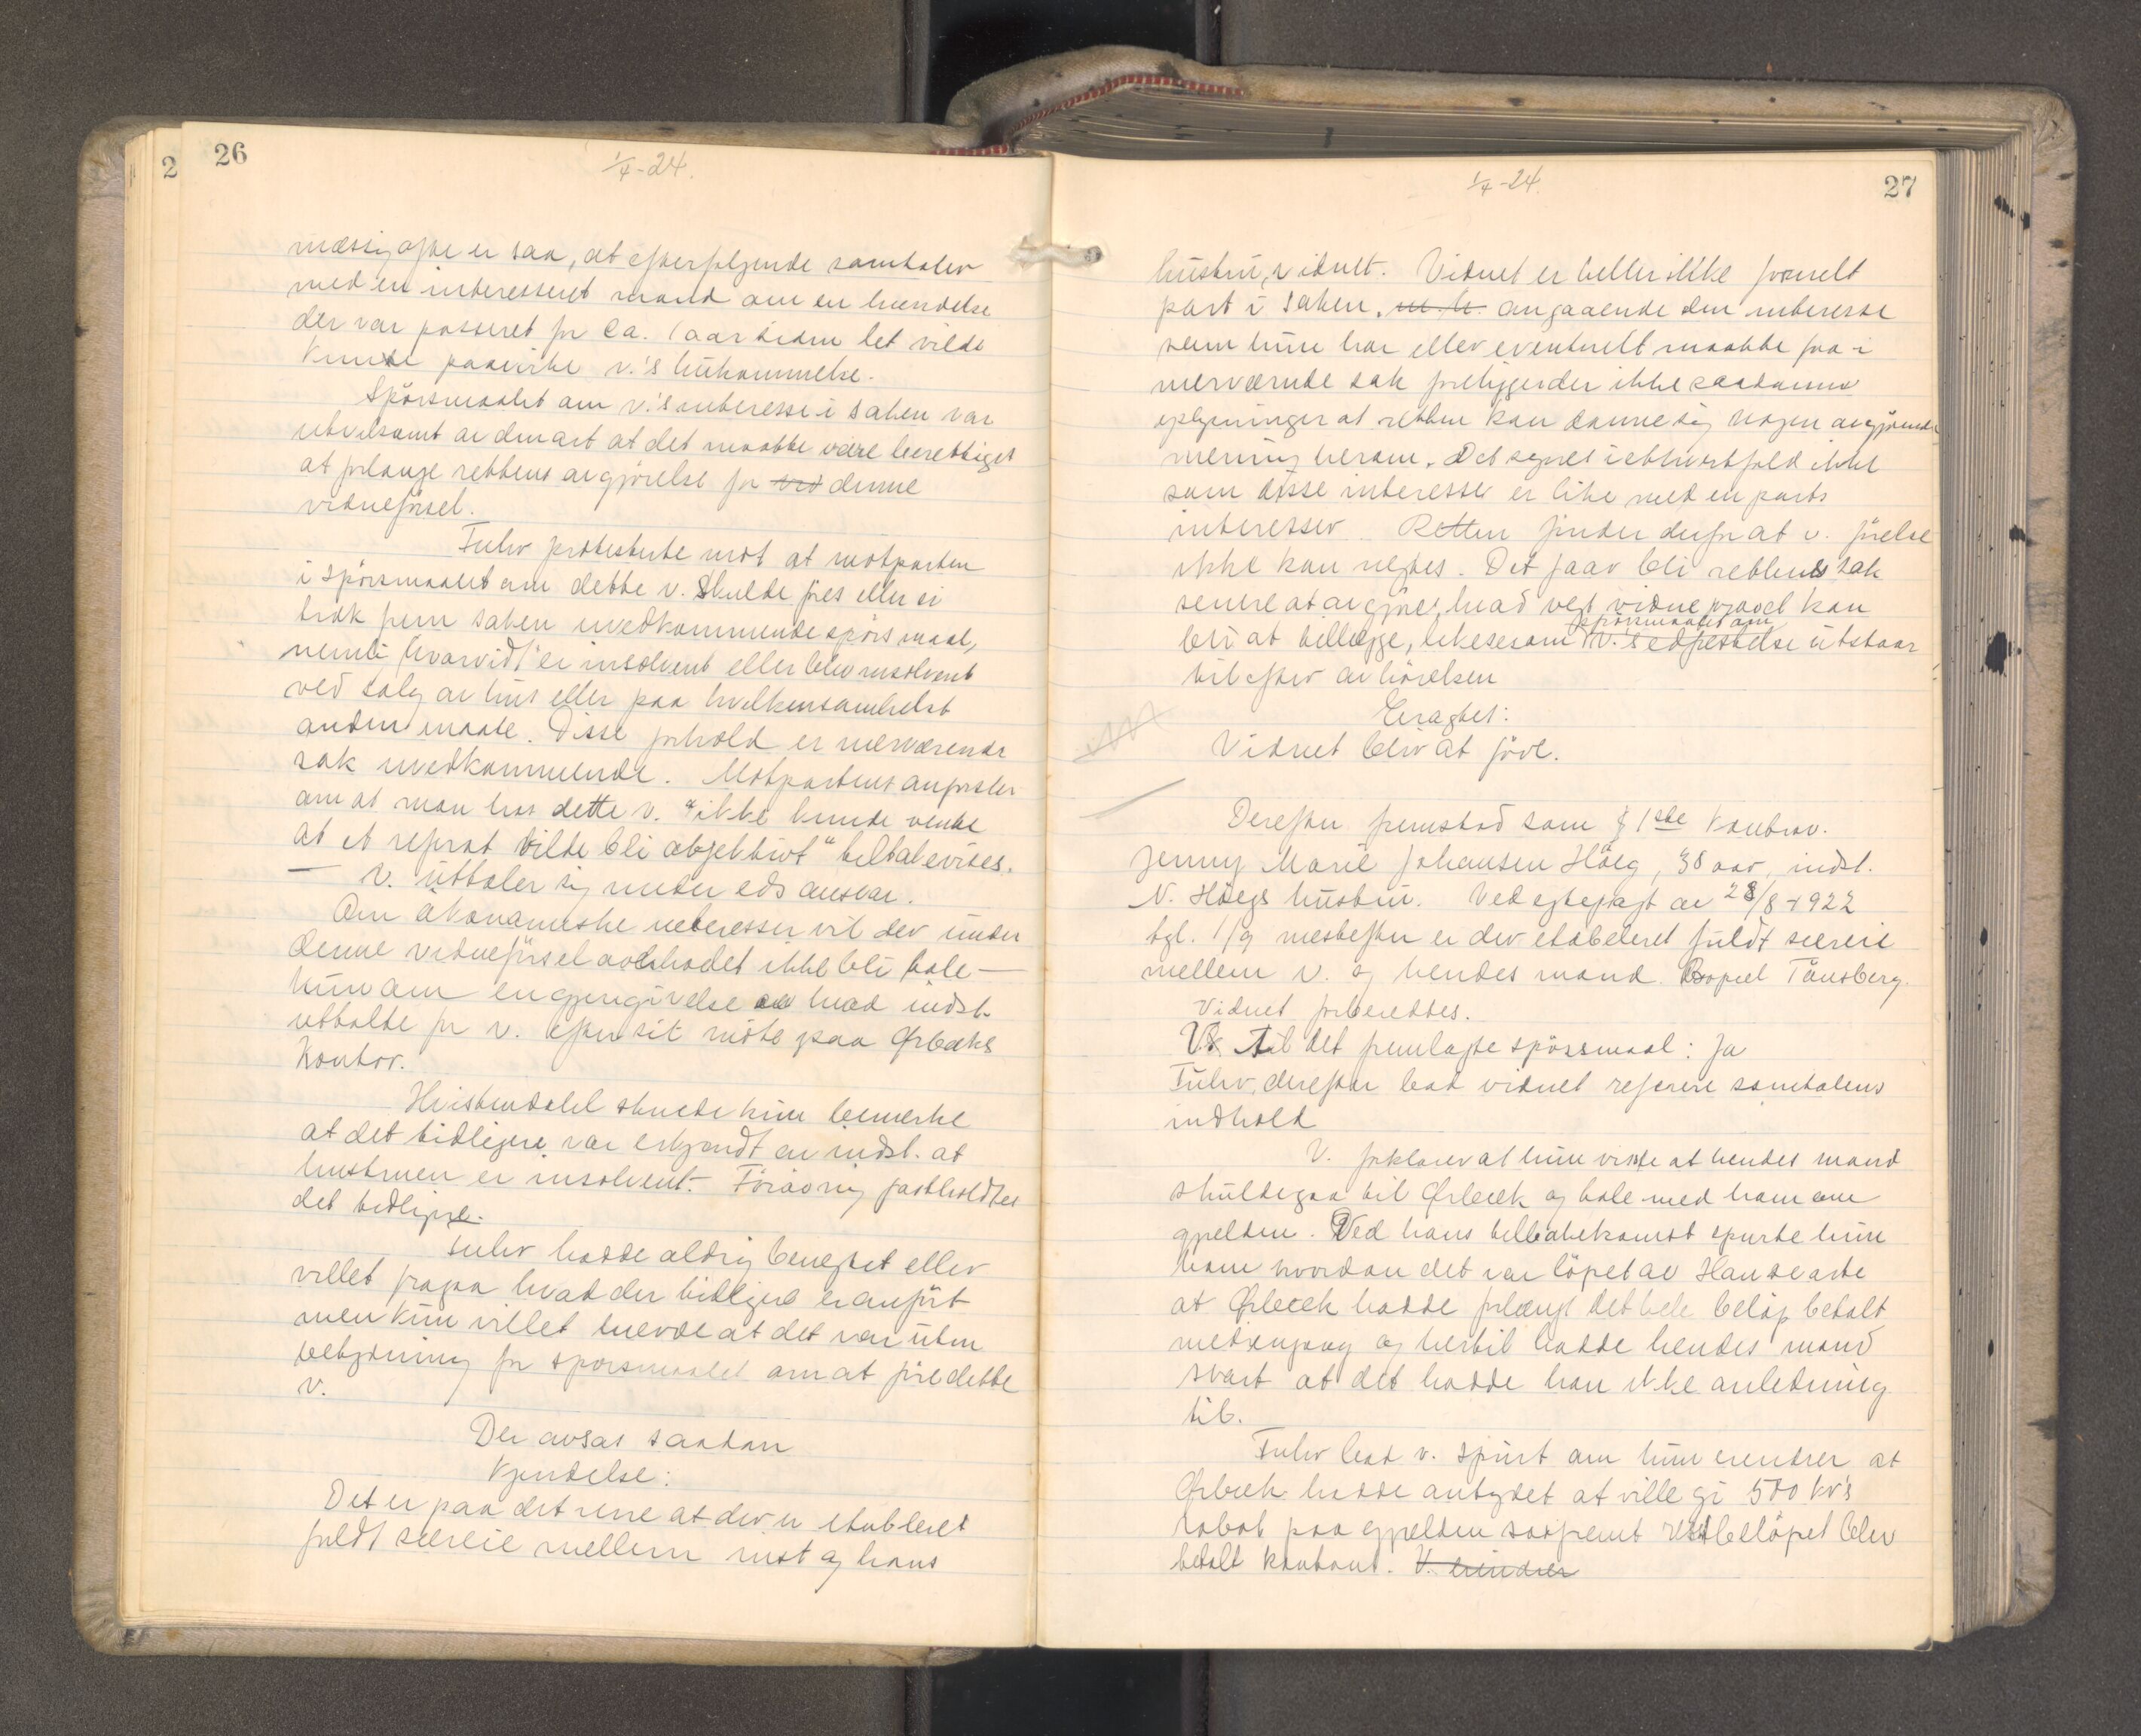 2 26
1/4-24.
mæssig ofte er saa, at efterfølgende samtaler
med en interesseret mand om en hændelse
der var passeret for ca. 1 aar siden let vilde
kunde paavirke v.'s hukommelse.
Spørsmaalet om v.'s interesse i saken var
utvilsomt av den art at det maatte være berettiget
at forlange rettens avgjørelse for ved denne
vidneførsel.
Fuhr protesterte mot at motparten
i spørsmaalet om dette v. skulde føres eller ei
trak frem saken uvedkommende spørsmaal,
nemlig hvorvidt er insolvent eller blev insolvent
ved salg av hus eller paa hvilkensomhelst
anden maate. Disse forhold er nærværende
sak uvedkommende. Motpartens anførsler
om at man hos dette v. "ikke kunde vente
at et referat vilde bli objektivt" tilbakevises.
— V. uttaler sig under eds ansvar.
Om økonomiske interesser vil der under
denne vidneførsel overhodet ikke bli tale —
kun om en gjengivelse av hvad indst.
uttalte for v. efter sit møte paa Ørbæks
kontor.
Heistendahl skulde kun bemerke
at det tidligere var erkjendt av indst. at
hustruen er insolvent. Forøvrig fastholdtes
det tidligere.
Fuhr hadde aldrig benegtet eller
villet fragaa hvad der tidligere er anført
men kun villet hævde at det var uten
betydning for spørsmaalet om at føre dette
v.
Der avsas saadan
Kjendelse:
Det er paa det rene at der er etableret
fuldt særeie mellem indst og hans
1/4-24.
27
hustru, vidnet. Vidnet er heller ikke formelt
part i saken. m. h. angaaende den interesse
som hun har eller eventuelt maatte faa i
nærværende sak foreligger der ikke saadanne
oplysninger at retten kan danne sig nogen avgjørende
mening herom. Det synes i ethvertfald ikke
som disse interesser er like med en parts
interesser. Retten finder derfor at v. førelse
ikke kan negtes. Det faar bli rettens sak
senere at avgjøre, hvad vegt vidneprovet kan
spørsmaalet om
bli at tillægge, likesesom v.'s edfestelse utstaar
til efter avhørelsen
Eragtet:
Vidnet blir at føre.
Derefter fremstod som 1ste kontrav.
Jenny Marie Johansen Höeg, 38 aar, indst.
N. Höegs hustru. Ved egtepagt av 28/8 1922
tgl. 1/9 næstefter er der etableret fuldt særeie
mellem v. og hendes mand. Bopæl Tønsberg.
Vidnet forberedtes.
V. Til det fremlagte spørsmaal: Ja
Fuhr derefter lod vidnet referere samtalens
indhold
V. forklarer at hun visste at hendes mand
skulde gaa til Ørbæk og tale med ham om
gjælden. Ved hans tilbakekomst spurte hun
ham hvordan det var løpet av. Han svarte
at Ørbæk hadde forlangt det hele beløp betalt
med engang og hertil hadde hendes mand
svart at det hadde han ikke anledning
til.
Fuhr lod v. spurt om hun erindrer at
Ørbæk hadde antydet at ville gi 500 kr's
rabat paa gjælden saafremt restbeløpet blev
betalt kontant. V. erindrer